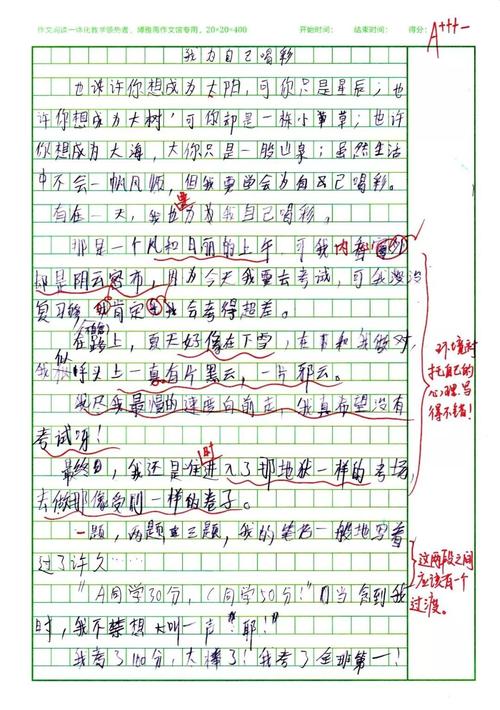 作文阅读一体化教学领先者，博雅南作文馆专用，20×20=400 开始时间： 结束时间： 得分： A+++-
我为自己喝彩
也许许你想成为太阳，可你只是星辰；也
许你想成为大树，可你却是一株小草草；也许
你想成为大海，大你只是一股山泉；虽然生活
中不会一帆风顺，但我要学会为自己喝彩。
有在一天，我为我自己喝彩。
那是一个风和日丽的上午，可我内
却是阴云密布，因为今天我要去考试，可我没
复习 肯定 我会考得超差。
在路上，夏天好像在下雪，在 和我做对，
我 头上一直有片黑云，一片邪云。
我尽我最慢的速度向前走，我真希望没有
考试呀！
最终 ，我还是 进入了那地狱一样的考场，
去做那像受刑一样的卷子。
一题，两题 三题，我的笔 一般地写着
过了许久……
“A同学30分，C同学50分！” 当念到我
时，我不禁想大叫一声“耶！”
我考了100分，太棒了！我考了全班第一！
环境衬
托自己的
心理写
得不错！
这两段之间
应该有一个
过渡。